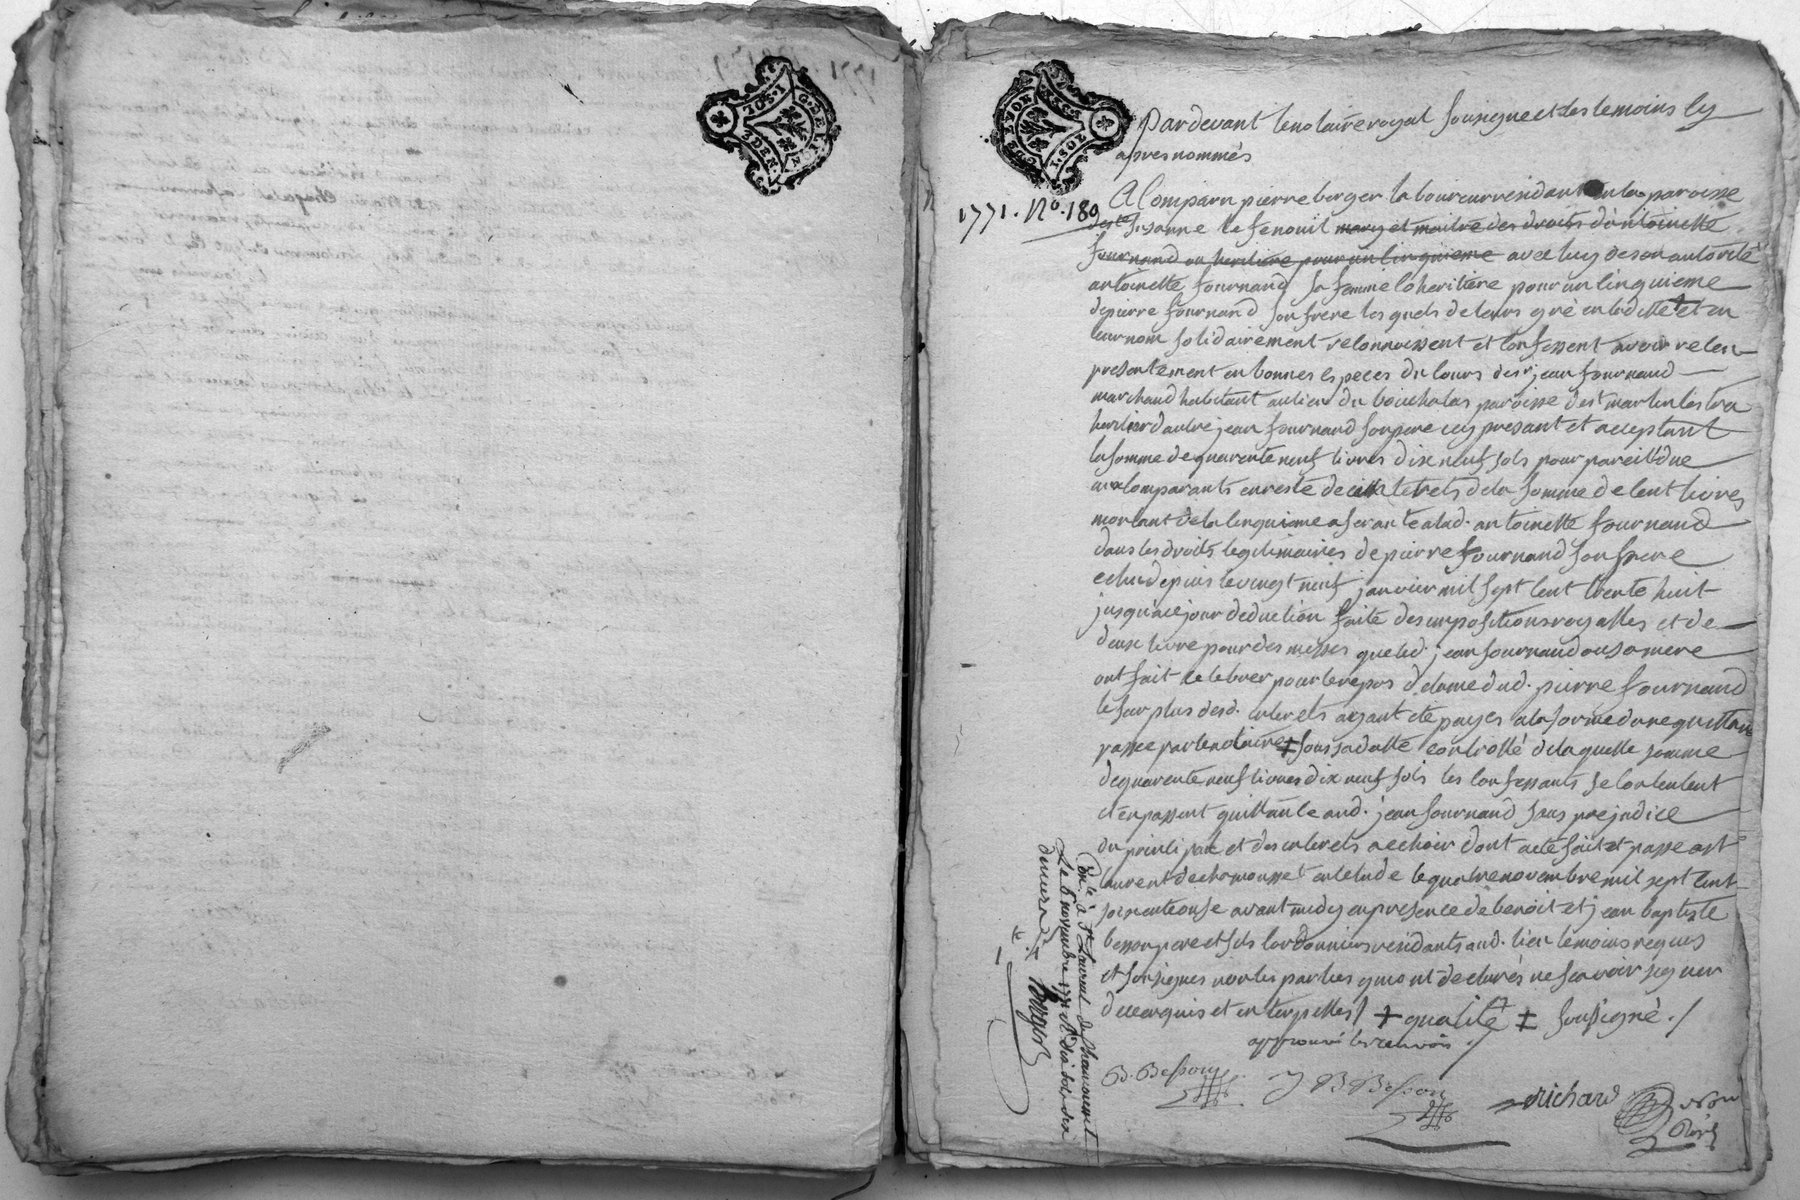 G. DE LYON
1. SOL
2. DEN.
1771. No. 180
Pardevant le notaire royal sousigne et les temoins cy
apres nommés
A Comparu pierre berger laboureur residant en la paroisse
de ste Susanne le fenouil mary et maitre des droits d'antoinette
fournand coheritiere pour un cinquieme avec luy de son autorité
antoinette fournand sa femme coheritiere pour un cinquieme
de pierre fournand son frere lesquels de leurs gré en ladite ‡ et en
leur nom solidairement reconnoissent et confessent avoir recu
presentement en bonnes especes du cours de sr jean fournand
marchand habitant au lieu du bouchalas paroisse de st martin lestra
heritier d'autre jean fournand son pere icy present et acceptant
la somme de quarente neuf livres dix neuf sols pour pareille due
aux comparants en reste de interets de la somme de cent livres
montant de la cinquieme aferante a lad. antoinette fournand
dans les droits legitimaires de pierre fournand son frere
echue depuis le vingt neuf janvier mil sept cent trente huit
jusqu'a ce jour deduction faite des impositions royalles et de
deux livre pour des messes que led. jean fournand ou sa mere
ont fait celebrer pour le repos de l'ame dud. pierre fournand
le surplus desd. interets ayant eté payes a la forme d'une quittance
passee par le notaire ‡ sous sa datte controllé de laquelle somme
de quarente neuf livres dix neuf sols les confessants se contentent
et en passent quittance aud. jean fournand sans prejudice
du principal et des interets a echoir dont acte fait et passe a st
laurent de chamousset en etude le quatre novembre mil sept cent
soixante onse avant midy en presence de benoit et jean baptiste
besson pere et fils cordonniers residants aud. lieu temoins requis
et sousignes non les parties qui ont declarés ne scavoir signer
de ce enquis et interpelles / ‡ qualité ‡ sousigné ./
approuvé les renvois
B. Besson J B Besson
Richard
Cnlé à St Laurent de Chamousset
Le 6 novembre 1771 Rt dix sols six
deniers